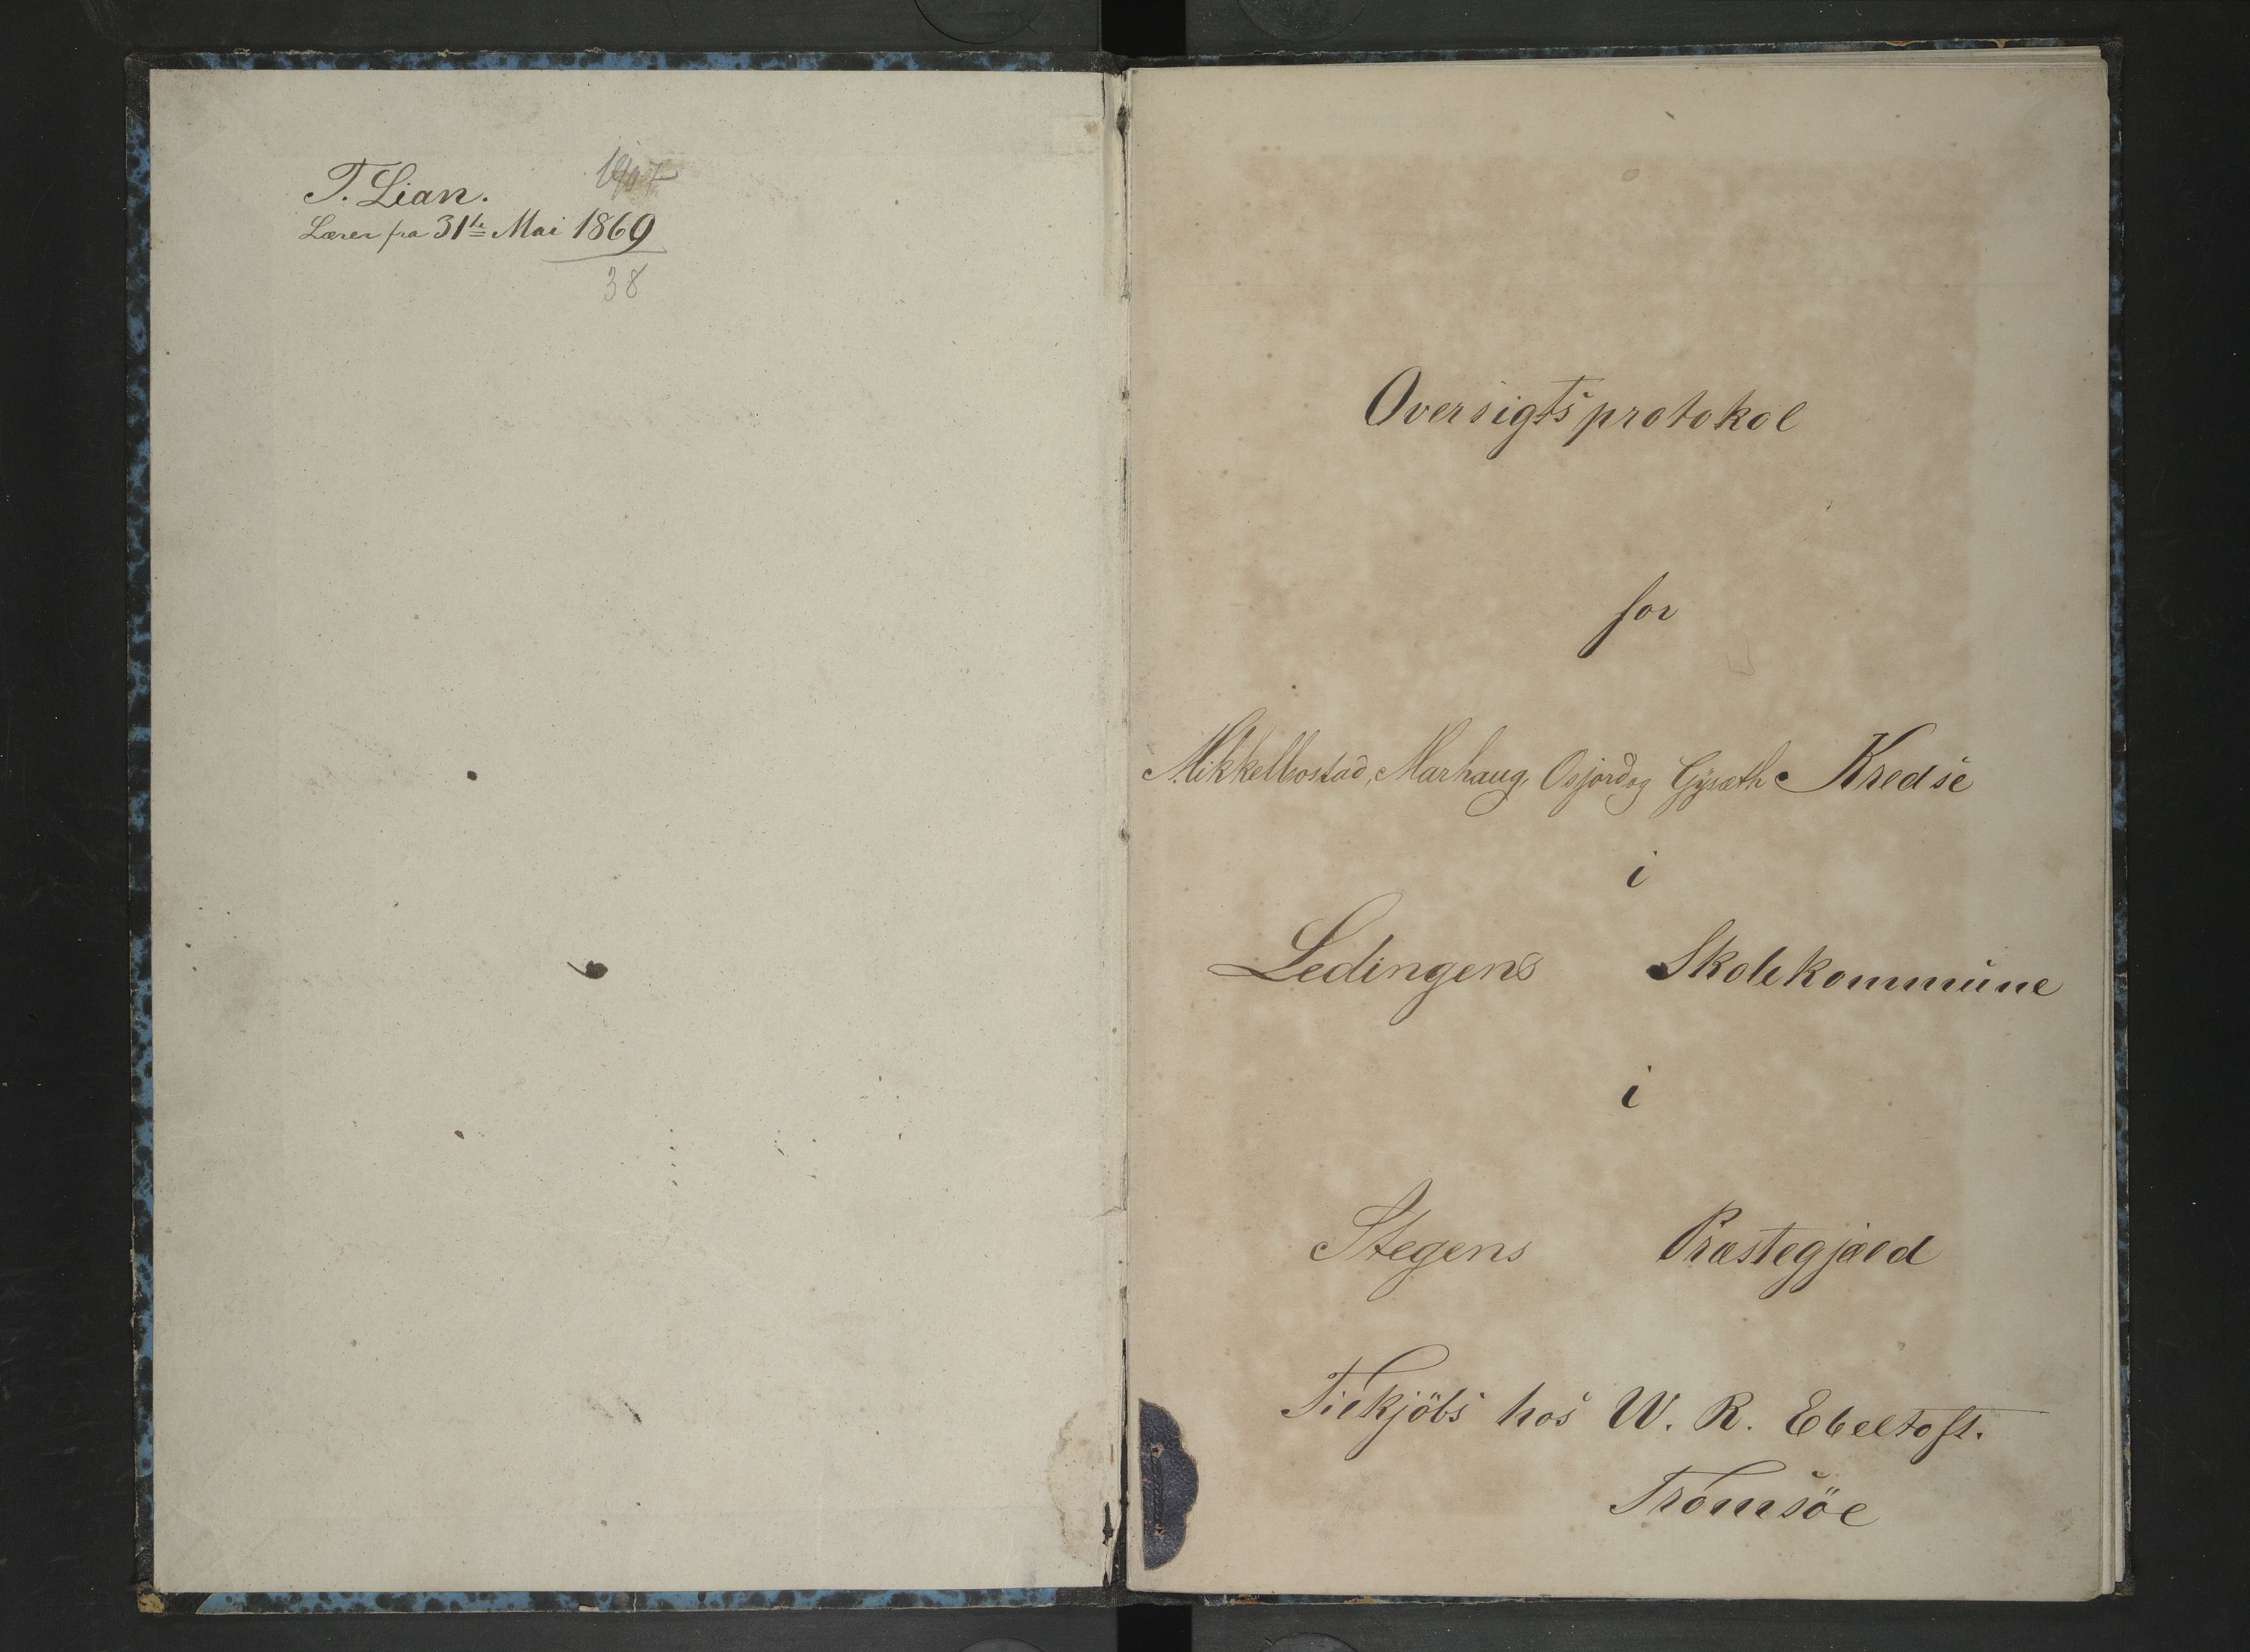 T. Lian.
1907
Lærer fra 31te Mai 1869
38
Oversigtsprotokol
for
Mikkelbostad, Marhaug, Osjord og Gjysæth Kredse
i
Lødingens Skolekommune
i
Stegens Præstegjæld
Tilkjöbs hos W. R. Ebeltoft.
Tromsöe